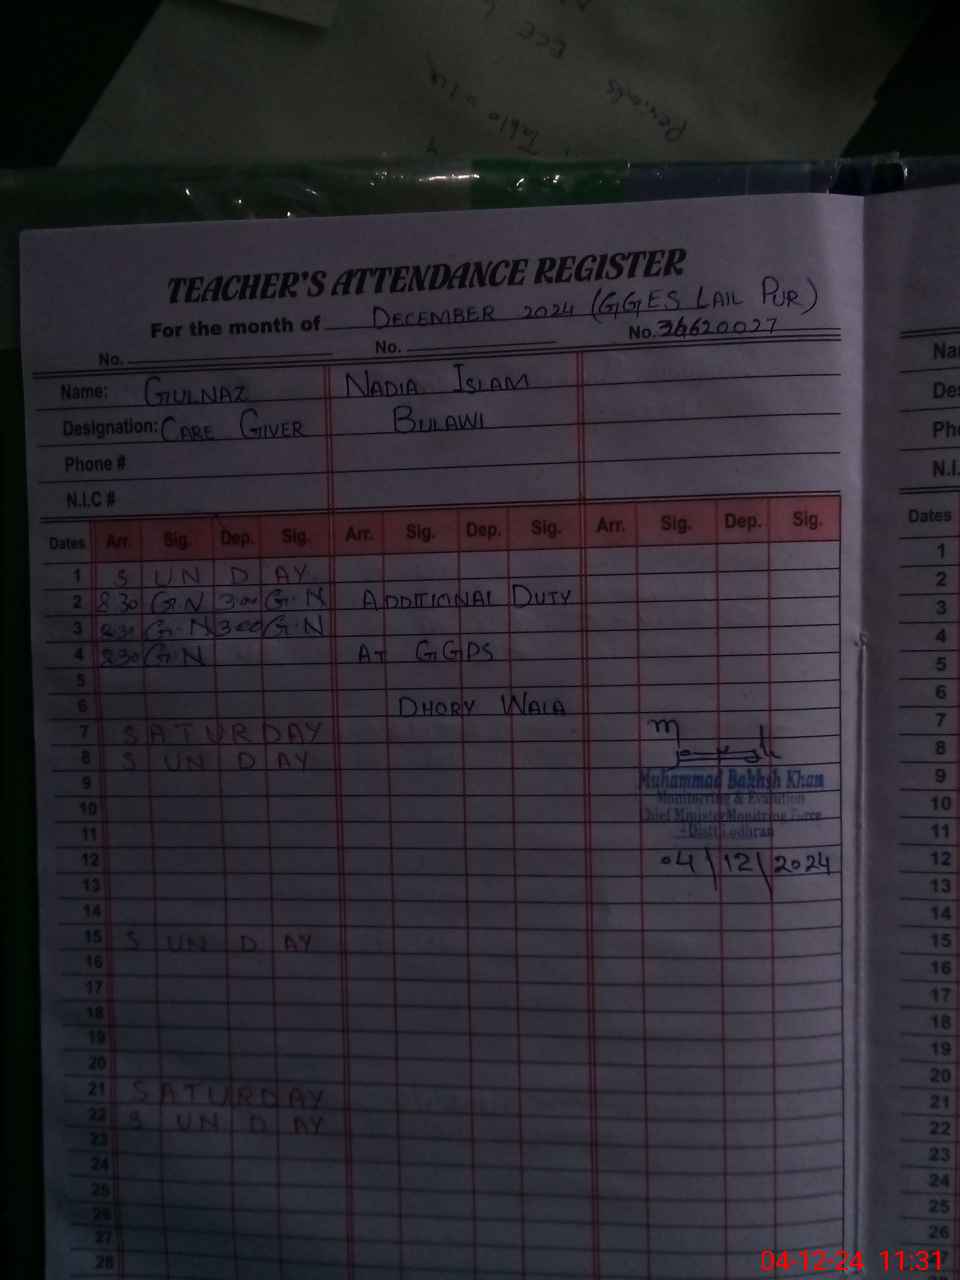 Periods ECE
Table
TEACHER'S ATTENDANCE REGISTER
For the month of DECEMBER 2024 (GGES LAIL PUR)
No. No. No. 36620027
Name: GULNAZ NADIA ISLAM
Designation: CARE GIVER BULAWI
Phone #
N.I.C #
Dates Arr. Sig. Dep. Sig. Arr. Sig. Dep. Sig. Arr. Sig. Dep. Sig.
1 S UN D AY
2 8:30 G.N 3:00 G.N ADDITIONAL DUTY
3 8:30 G.N 3:00 G.N
4 8:30 G.N AT GGPS
5
6 DHORY WALA
7 SATURDAY
8 S UN D AY
9
10
11
12
13
14
15 S UN D AY
16
17
18
19
20
21 SATURDAY
22 S UN D AY
23
24
25
26
27
28
Muhammad Bakhsh Khan
Monitoring & Evalution
Chief Minister Monitring Force
Distt Lodhran
04/12/2024
Na
De
Ph
N.I.
Dates
1
2
3
4
5
6
7
8
9
10
11
12
13
14
15
16
17
18
19
20
21
22
23
24
25
26
04-12-24 11:31